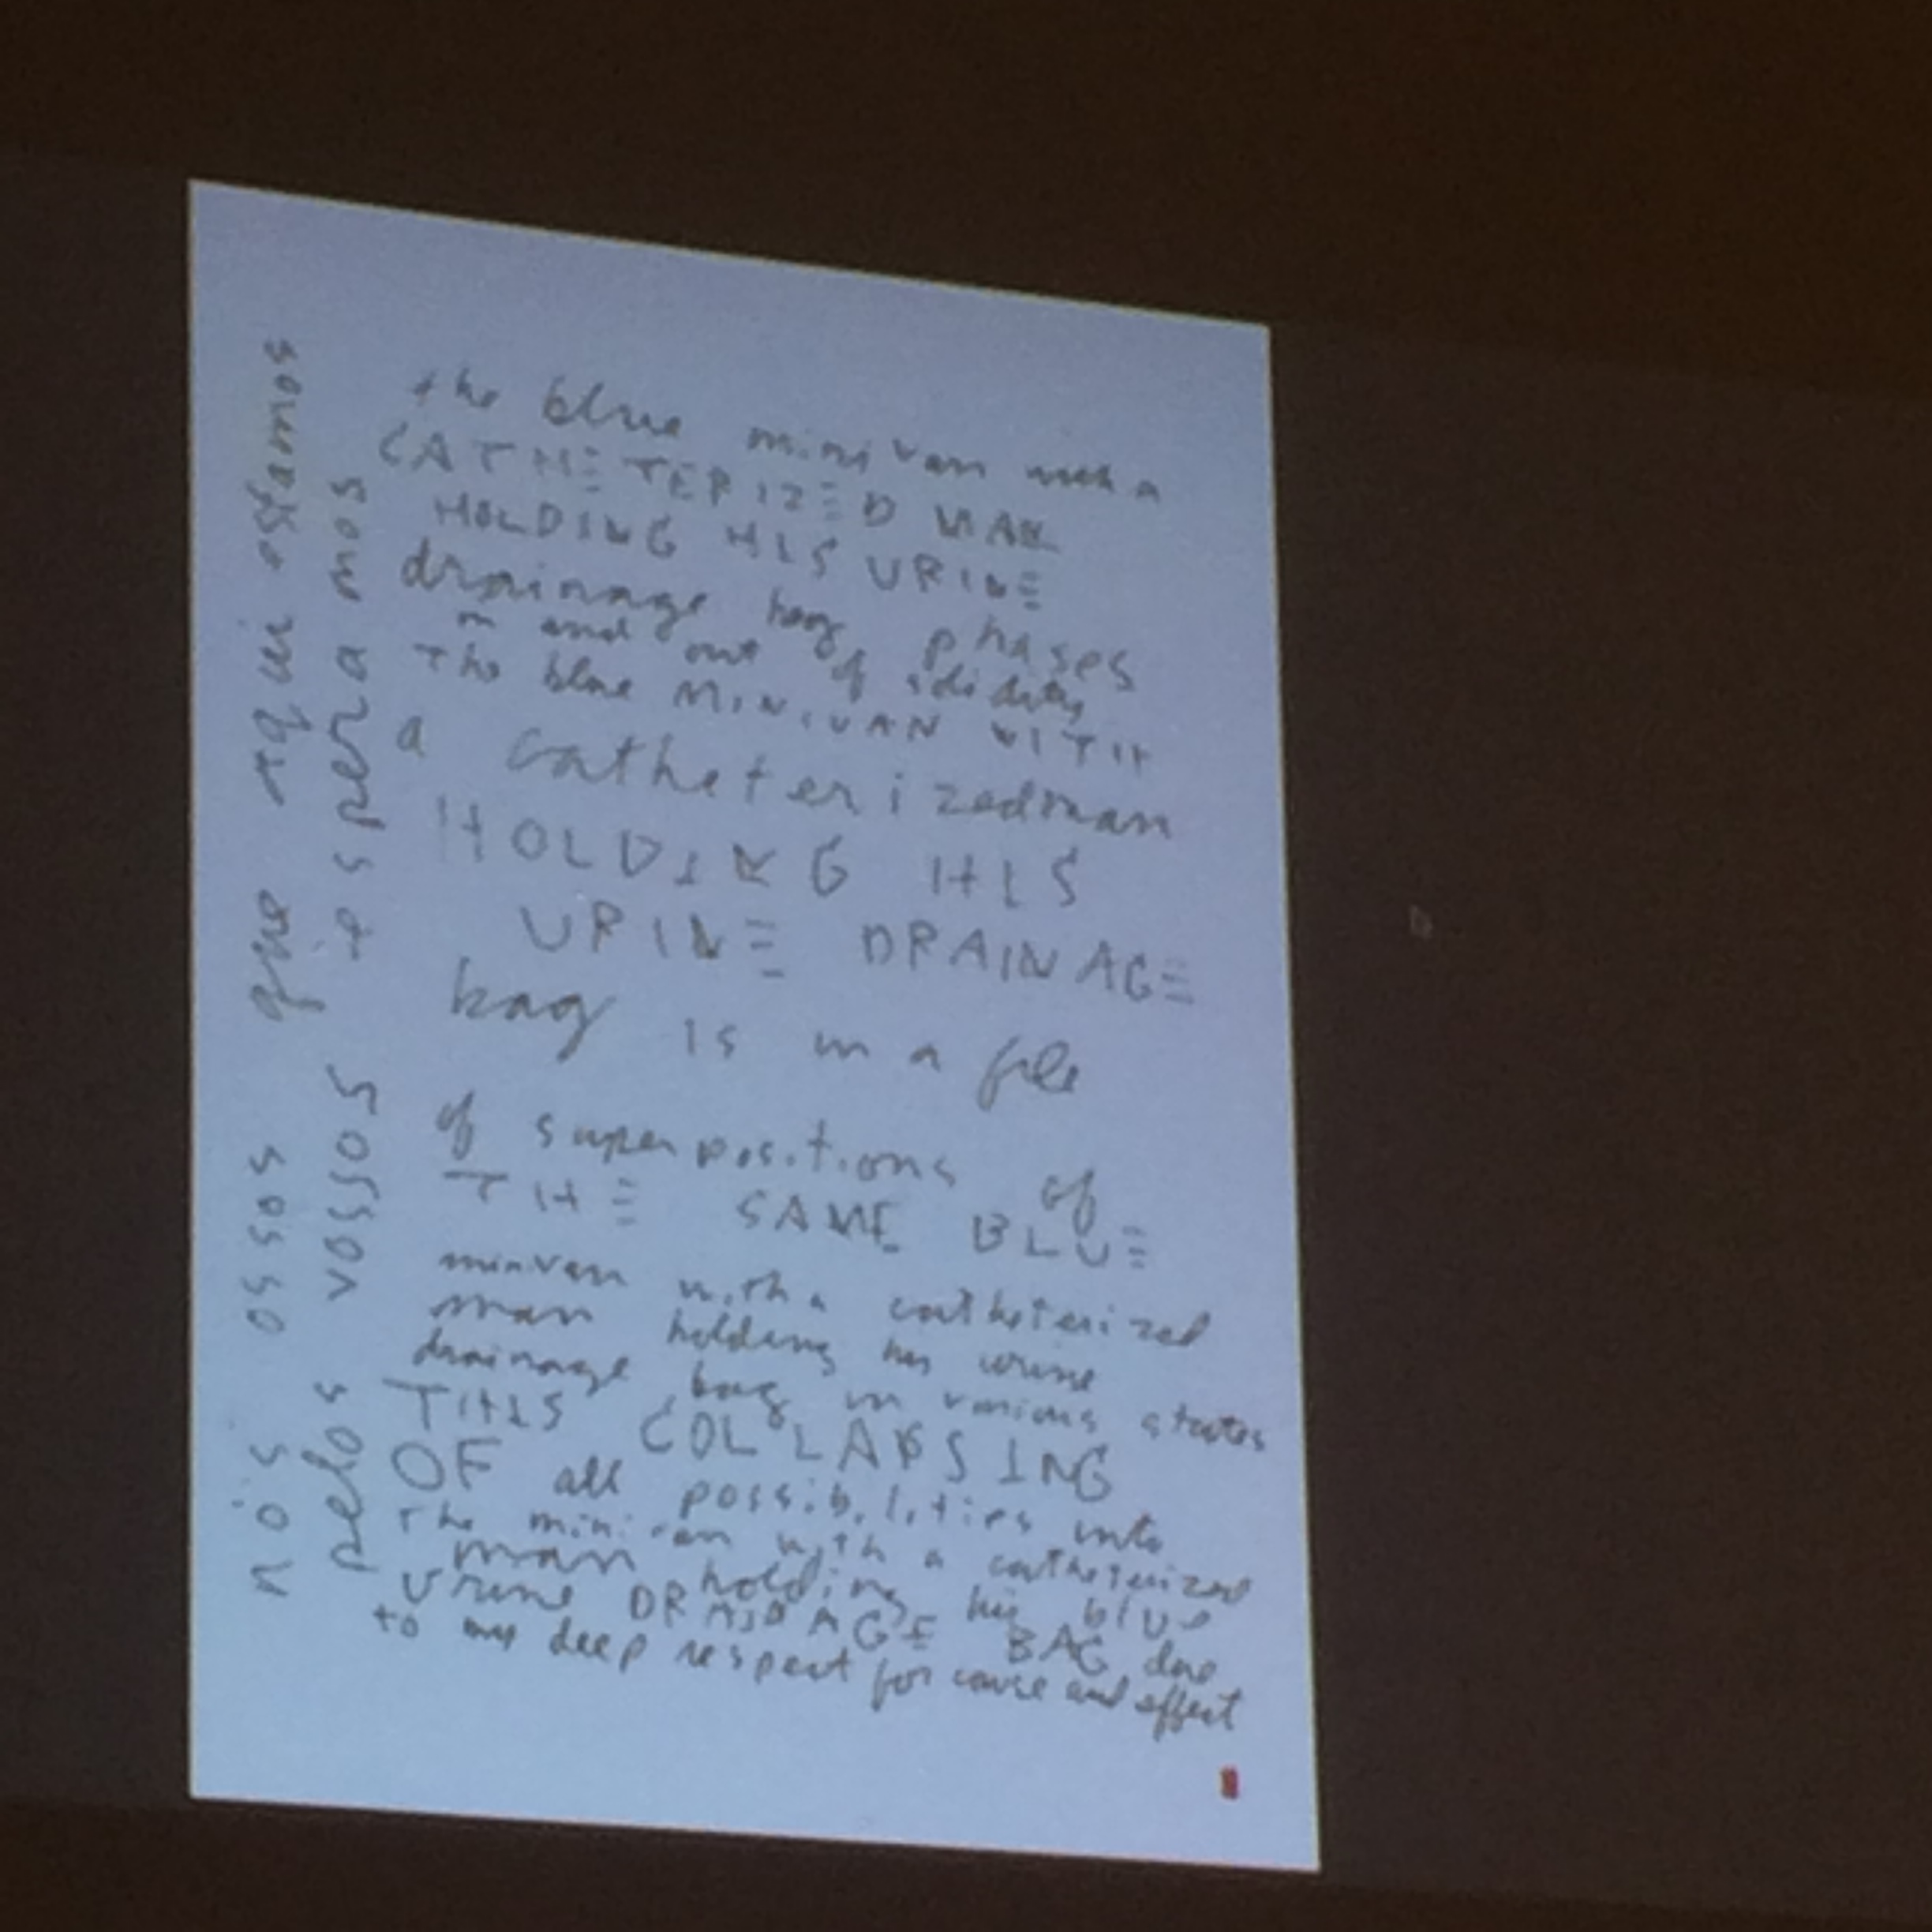 the blue minivan with a
CATHETERIZED MAN
HOLDING HIS URINE
drainage bag phases
in and out of solidity
The blue MINIVAN WITH
a catheterizedman
HOLDING HIS
URINE DRAINAGE
bag is in a file
of superpositions of
THE SAME BLUE
minivan with a catheterized
man holding his urine
drainage bag in various states
THIS COLLAPSING
OF all possibilities into
The minivan with a catheterized
man holding his blue
Urine DRAINAGE BAG due
to my deep respect for cause and effect
nós ossos que aqui estamos
pelos vossos esperamos